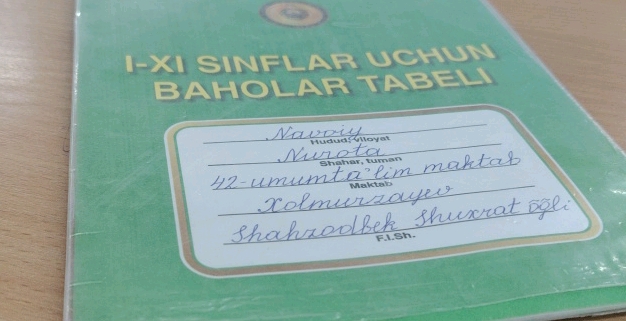 I-XI SINFLAR UCHUN
BAHOLAR TABELI
Navoiy
Hudud, viloyat
Nurota
Shahar, tuman
42-umumta'lim maktab
Maktab
Xolmurzayev
Shahzodbek Shuxrat o'g'li
F.I.Sh.